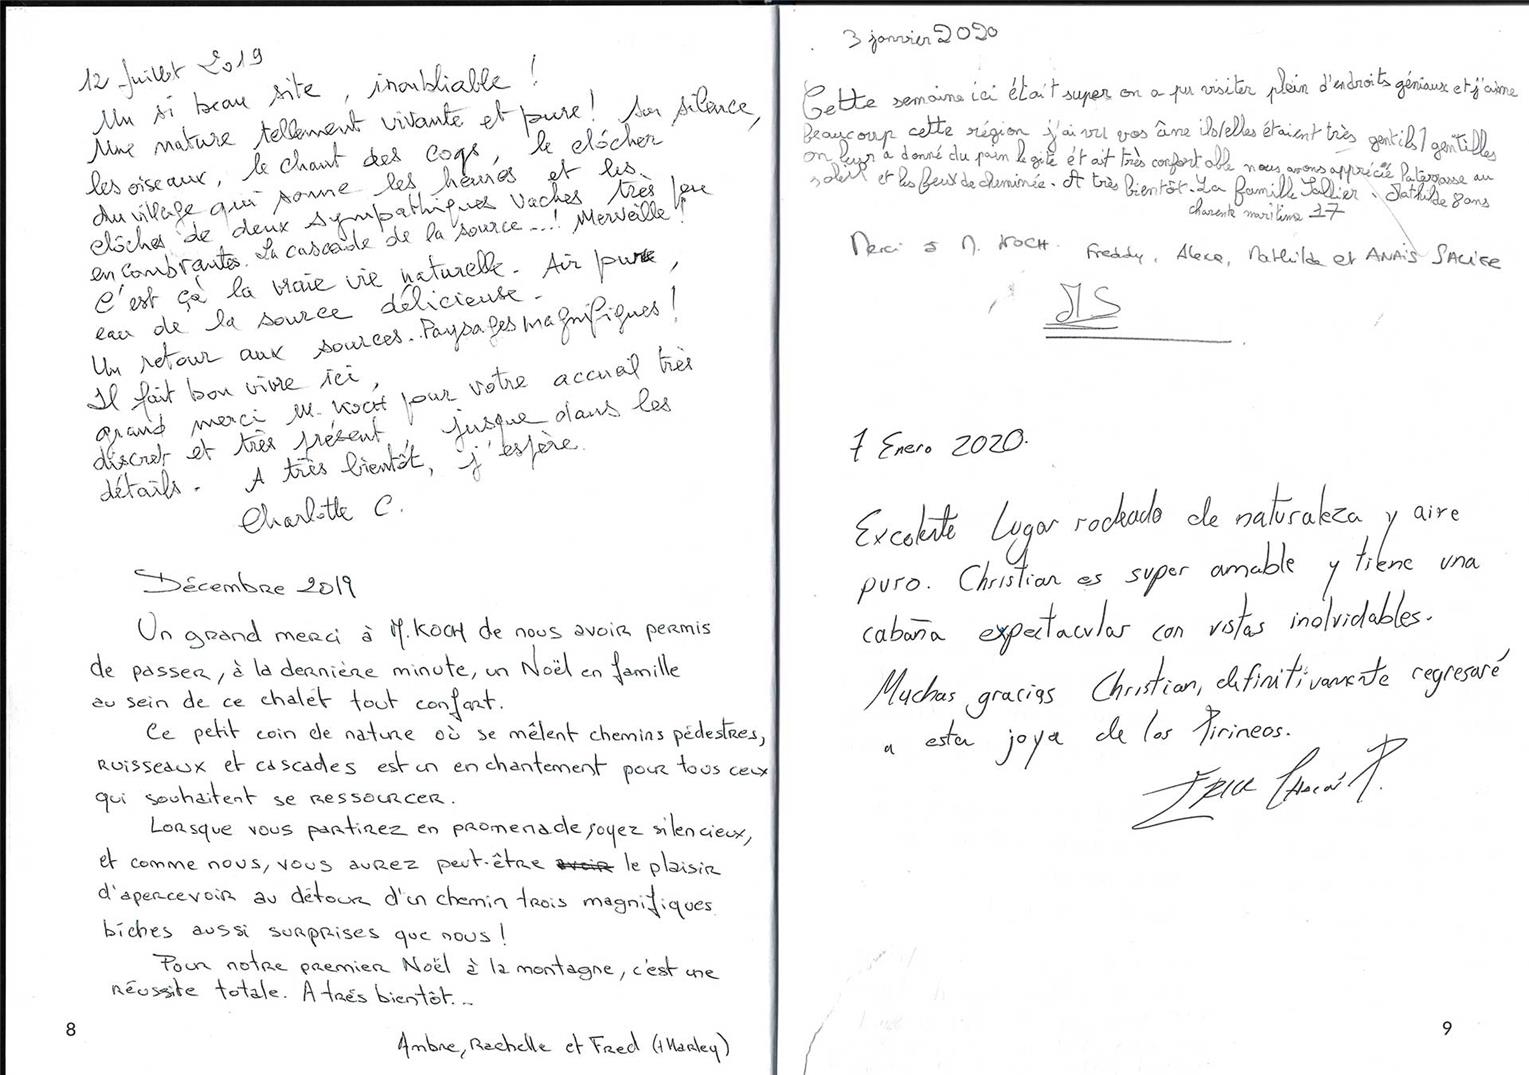 12 Juillet 2019
Un si beau site, inoubliable !
Une nature tellement vivante et pure ! Son silence,
les oiseaux, le chant des coqs, le clócher
du village qui sonne les heures et les
clóches de deux sympathiques vaches très peu
encombrantes. La cascade de la source ...! Merveille !
C'est çà la vraie vie naturelle. Air pure,
eau de la source délicieuse.
Un retour aux sources. Paysages magnifiques !
Il fait bon vivre ici,
grand merci M. KOCH pour votre accueil très
discret et très présent, jusque dans les
détails. A très bientôt, j'espère.
Charlotte C.
Décembre 2019
Un grand merci à M. KOCH de nous avoir permis
de passer, à la dernière minute, un Noël en famille
au sein de ce chalet tout confort.
Ce petit coin de nature où se mêlent chemins pédestres,
ruisseaux et cascades est un enchantement pour tous ceux
qui souhaitent se ressourcer.
Lorsque vous partirez en promenade, soyez silencieux,
et comme nous, vous aurez peut-être avoir le plaisir
d'apercevoir au détour d'un chemin trois magnifiques
biches aussi surprises que nous !
Pour notre premier Noël à la montagne, c'est une
réussite totale. A trés bientôt...
Ambre, Rachelle et Fred (+ Harley)
8
3 janvier 2020
Cette semaine ici était super on a pu visiter plein d'endroits géniaux et j'aime
beaucoup cette région j'ai vu vos âne ils/elles étaient très gentils/gentilles
on leur a donné du pain le gite était très confortable nous avons apprécié la terrasse au
soleil et les feux de cheminée. A très bientôt. La famille Mathilde 8 ans
charente maritime 17
Merci à M. KOCH. Freddy, Mathilde et ANAïS
MS
7 Enero 2020.
Excelente Lugar rodeado de naturaleza y aire
puro. Christian es super amable y tiene una
cabaña expectacular con vistas inolvidables.
Muchas gracias Christian, definitivamente regresaré
a esta joya de los Pirineos.
ERICK
9